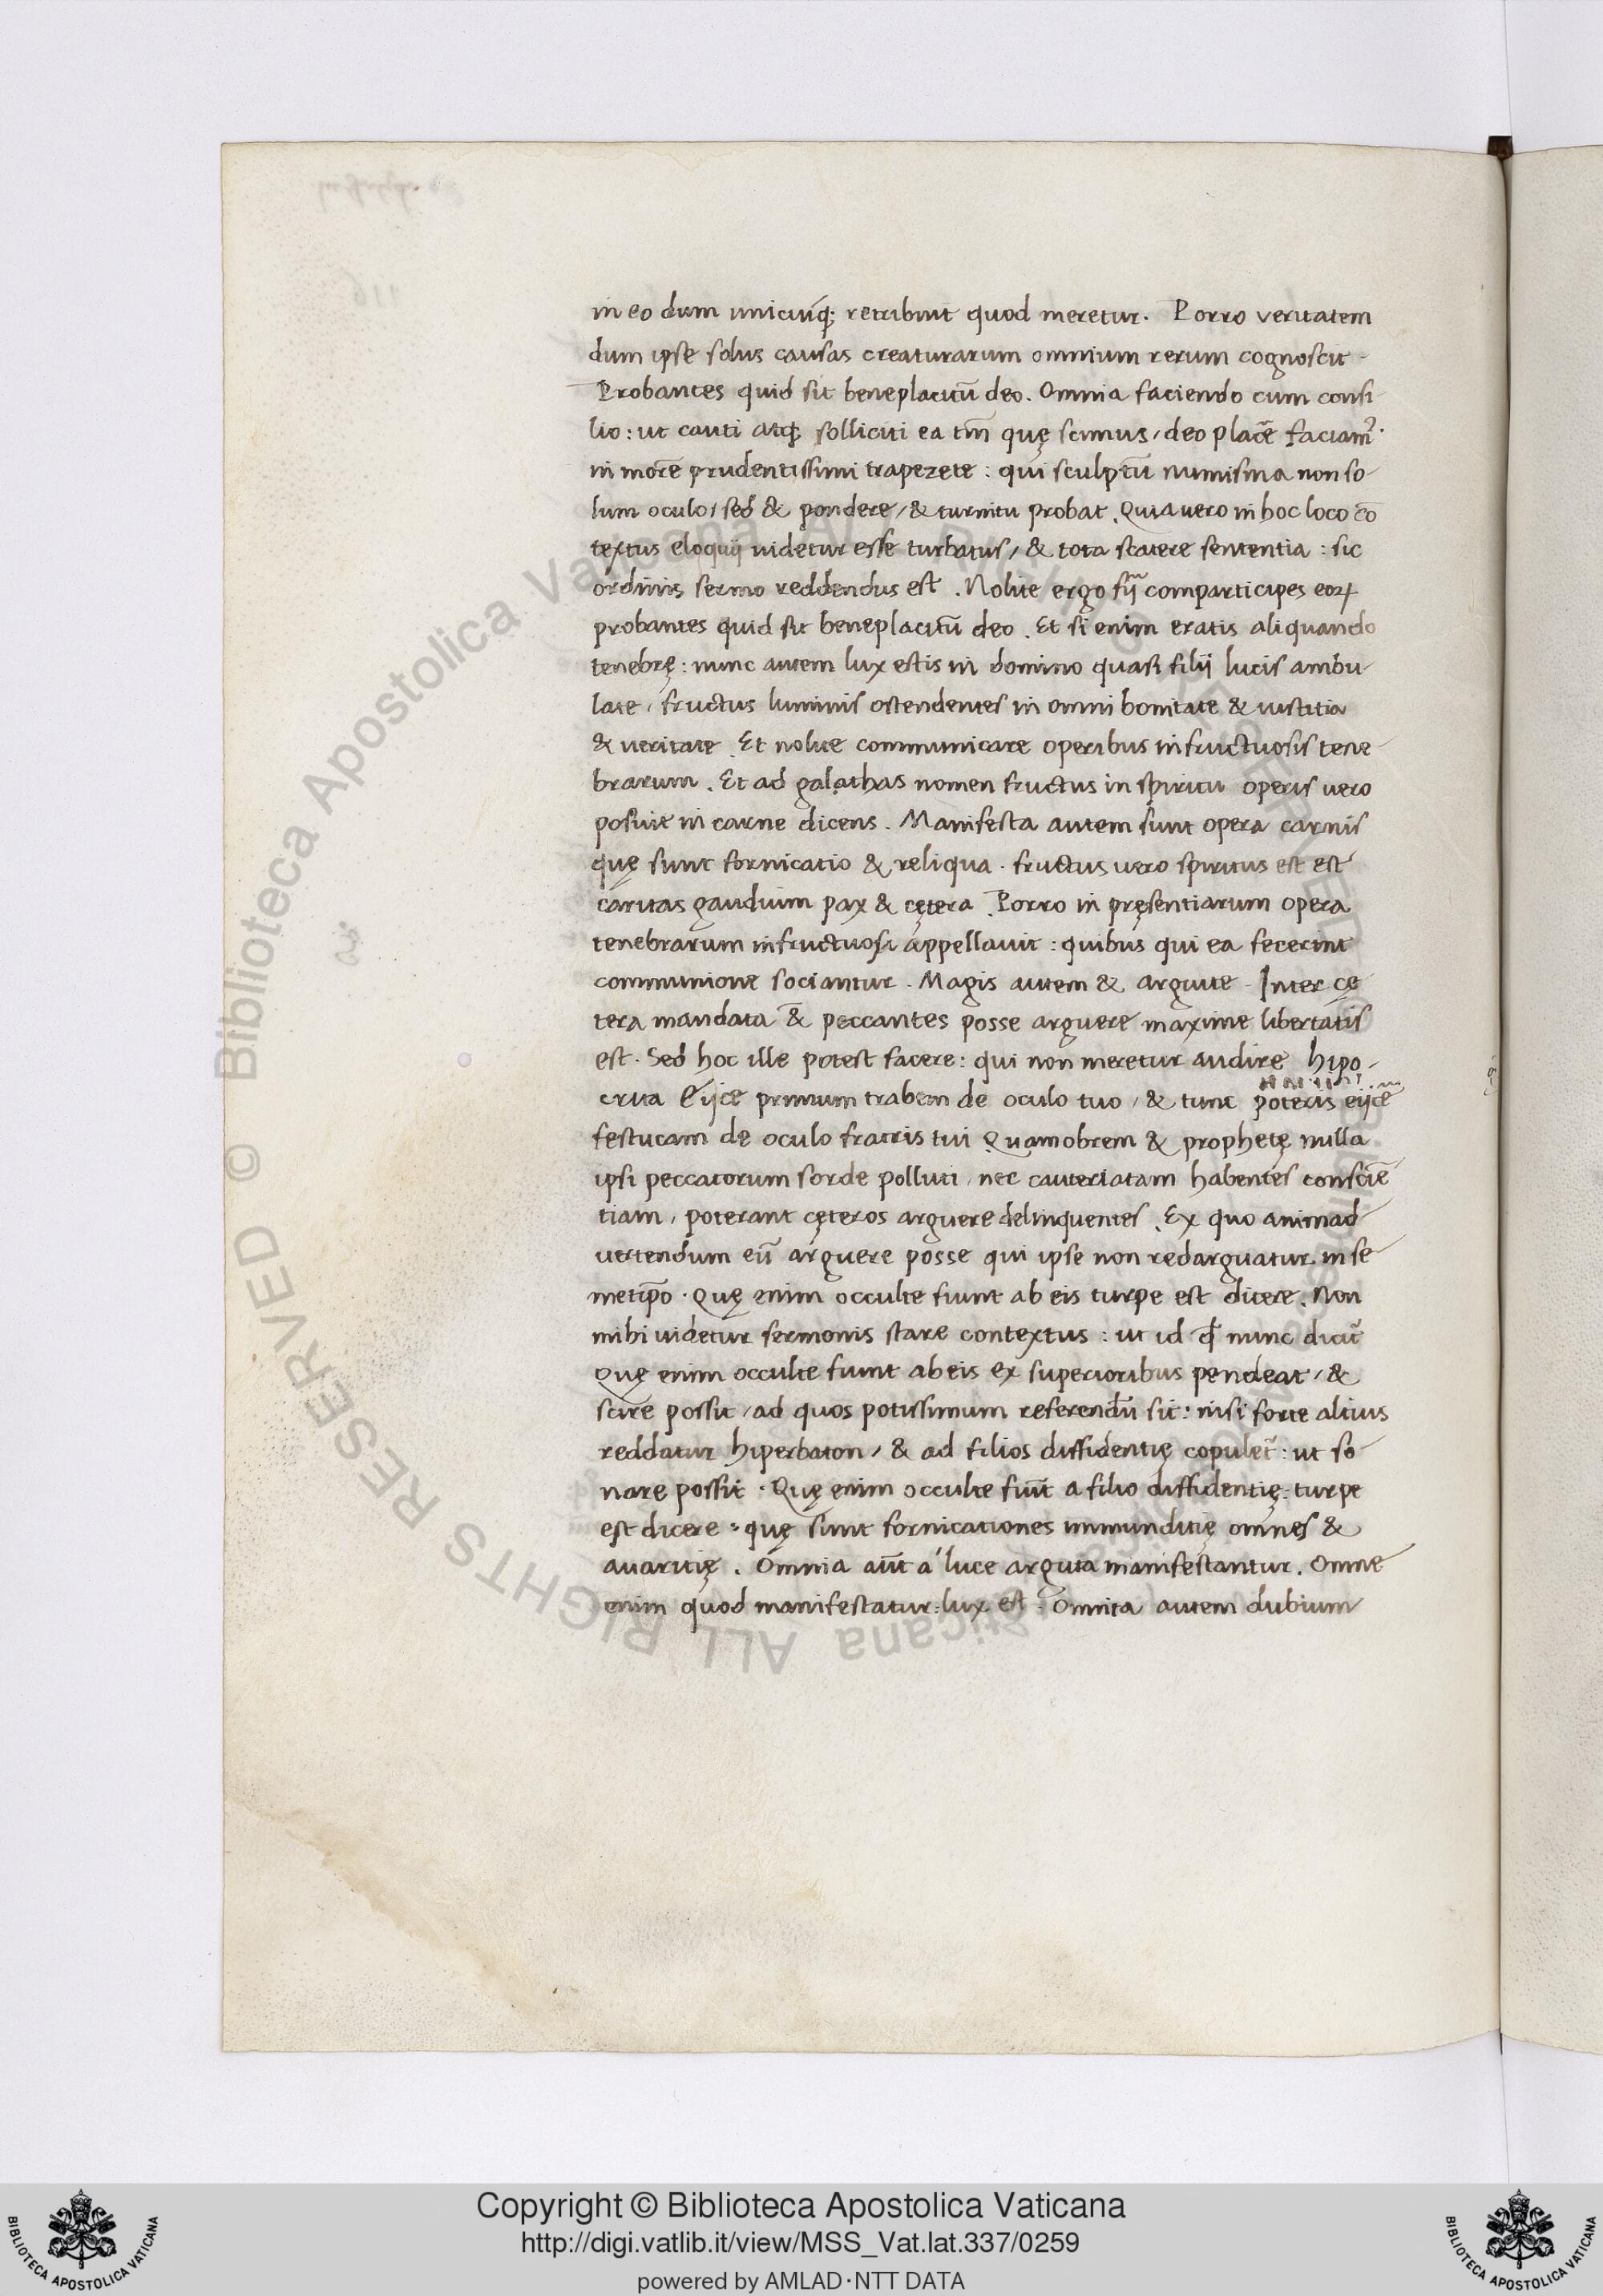 in eo dum unicuiq; retribuit quod meretur. Porro veritatem
dum ipse solus causas creaturarum omnium rerum cognoscit.
Probantes quid sit beneplacitū deo. Omnia faciendo cum consi-
lio: ut cauti atq; solliciti ea tm̄ quę scimus, deo placē faciamꝰ.
in morē prudentissimi trapezete: qui sculptū numisma non so-
lum oculo, sed & pondere, & turnitu probat. Quia vero in hoc loco cō
textus eloquij videtur esse turbatus, & tota scatere sententia: sic
ordinis sermo reddendus est. Nolite ergo fij̄ comparticipes eoꝝ
probantes quid sit beneplacitū deo. Et si enim eratis aliquando
tenebrę: nunc autem lux estis in domino quasi filij lucis ambu-
late, fructus luminis ostendentes in omni bonitate & iustitia
& veritate. Et nolite communicare operibus infructuosis tene-
brarum. Et ad galathas nomen fructus in spiritu operis vero
posuit in carne dicens. Manifesta autem sunt opera carnis
quę sunt fornicatio & reliqua. fructus vero spiritus est est
caritas gaudium pax & cętera. Porro in pręsentiarum opera
tenebrarum infructuosa appellavit: quibus qui ea fecerint
communione sociantur. Magis autem & arguite. Inter cę
tera mandata & peccantes posse arguere maxime libertatis
est. Sed hoc ille potest facere: qui non meretur audire hipo-
crita Eijce primum trabem de oculo tuo, & tunc poteris eijce
festucam de oculo fratris tui Quamobrem & prophetę nulla
ipsi peccatorum sorde polluti, nec cauteriatam habentes consciē
tiam, poterant cęteros arguere delinquentes. Ex quo animad
vertendum eū arguere posse qui ipse non redarguatur in se
metip̄o. Quę enim occulte fiunt ab eis turpe est dicere. Non
mihi videtur sermonis stare contextus: ut id qđ nunc dicit᷑
Quę enim occulte fiunt ab eis ex superioribus pendeat, &
scire possit, ad quos potissimum referendū sit: nisi forte altius
reddatur hiperbaton, & ad filios diffidentię copulet᷑: ut so-
nare possit. Quę enim occulte fiūt a filio diffidentię: turpe
est dicere: quę sunt fornicationes immunditię omnes &
avaritię. Omnia aūt a luce arguta manifestantur. Omne
enim quod manifestatur: lux est. Omnia autem dubium
Copyright © Biblioteca Apostolica Vaticana
http://digi.vatlib.it/view/MSS_Vat.lat.337/0259
powered by AMLAD·NTT DATA
BIBLIOTECA APOSTOLICA VATICANA
BIBLIOTECA APOSTOLICA VATICANA